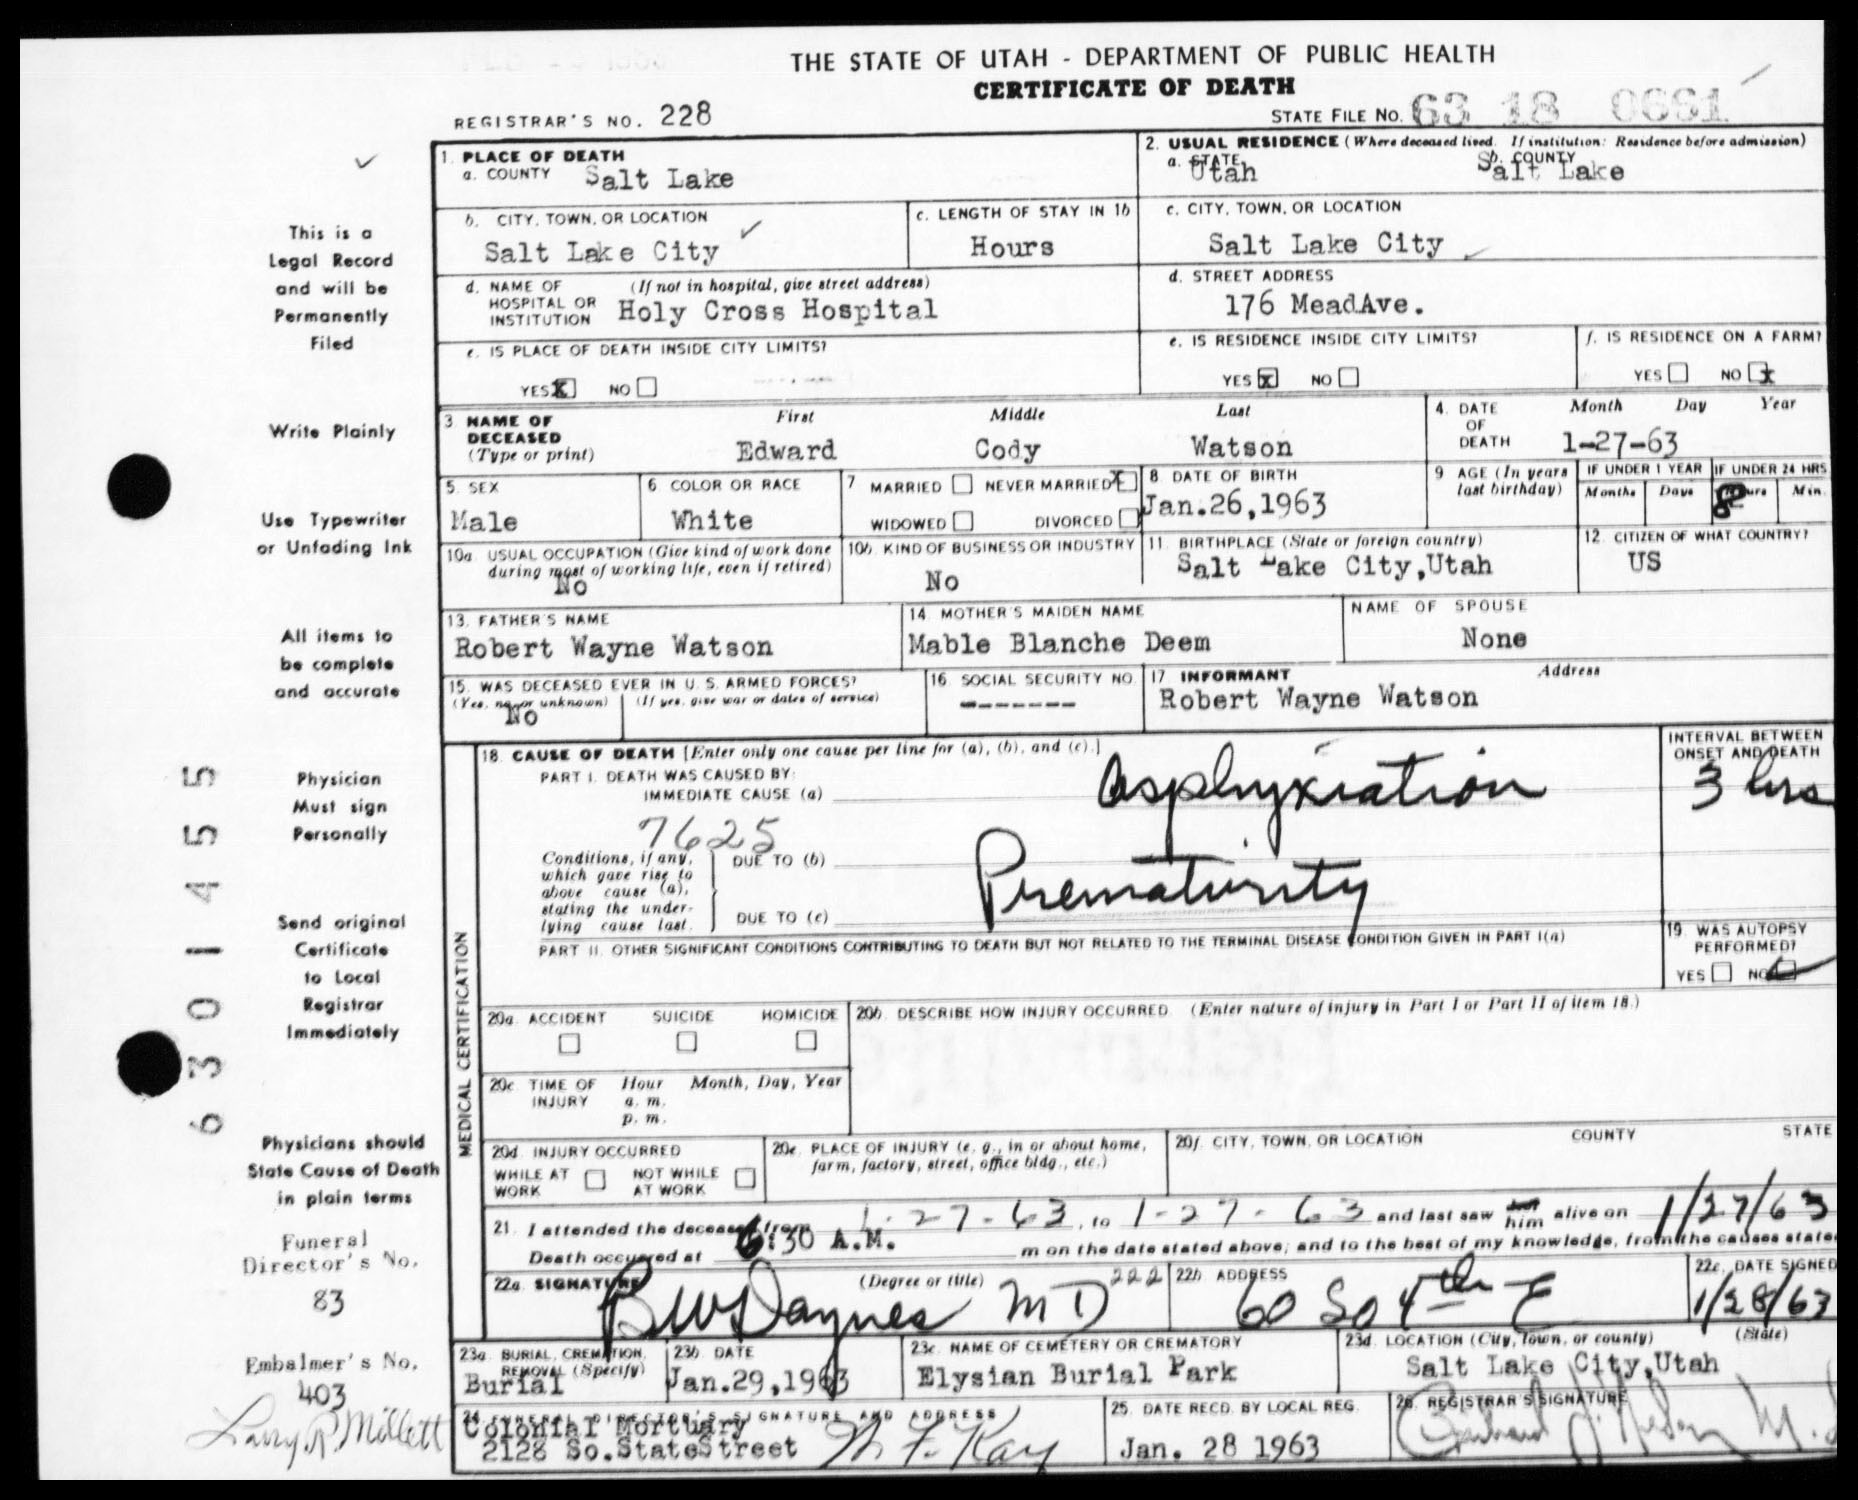 THE STATE OF UTAH - DEPARTMENT OF PUBLIC HEALTH
CERTIFICATE OF DEATH
REGISTRAR'S NO. 228
STATE FILE NO. 63 18 0681
This is a
Legal Record
and will be
Permanently
Filed
Write Plainly
Use Typewriter
or Unfading Ink
All items to
be complete
and accurate
Physician
Must sign
Personally
Send original
Certificate
to Local
Registrar
Immediately
Physicians should
State Cause of Death
in plain terms
Funeral
Director's No.
83
Embalmer's No.
403
Larry R Millett
6301455
1. PLACE OF DEATH
a. COUNTY Salt Lake
2. USUAL RESIDENCE (Where deceased lived. If institution: Residence before admission)
a. STATE Utah b. COUNTY Salt Lake
b. CITY, TOWN, OR LOCATION
Salt Lake City
c. LENGTH OF STAY IN 1b
Hours
c. CITY, TOWN, OR LOCATION
Salt Lake City
d. NAME OF (If not in hospital, give street address)
HOSPITAL OR
INSTITUTION Holy Cross Hospital
d. STREET ADDRESS
176 Mead Ave.
e. IS PLACE OF DEATH INSIDE CITY LIMITS?
YES X NO
e. IS RESIDENCE INSIDE CITY LIMITS?
YES X NO
f. IS RESIDENCE ON A FARM?
YES NO X
3 NAME OF DECEASED (Type or print)
First Middle Last
Edward Cody Watson
4. DATE OF DEATH Month Day Year
1-27-63
5. SEX
Male
6 COLOR OR RACE
White
7 MARRIED NEVER MARRIED X
WIDOWED DIVORCED
8 DATE OF BIRTH
Jan.26,1963
9 AGE (In years last birthday)
IF UNDER 1 YEAR
Months Days
IF UNDER 24 HRS
Hours Min.
8
10a. USUAL OCCUPATION (Give kind of work done
during most of working life, even if retired)
No
10b. KIND OF BUSINESS OR INDUSTRY
No
11. BIRTHPLACE (State or foreign country)
Salt Lake City,Utah
12. CITIZEN OF WHAT COUNTRY?
US
13. FATHER'S NAME
Robert Wayne Watson
14 MOTHER'S MAIDEN NAME
Mable Blanche Deem
NAME OF SPOUSE
None
15. WAS DECEASED EVER IN U. S. ARMED FORCES?
(Yes, no, or unknown) (If yes, give war or dates of service)
No
16 SOCIAL SECURITY NO.
-------
17 INFORMANT Address
Robert Wayne Watson
MEDICAL CERTIFICATION
18. CAUSE OF DEATH [Enter only one cause per line for (a), (b), and (c).]
PART I. DEATH WAS CAUSED BY:
IMMEDIATE CAUSE (a) Asphyxiation
INTERVAL BETWEEN
ONSET AND DEATH
3 hrs
7625
Conditions, if any,
which gave rise to
above cause (a),
stating the under-
lying cause last.
DUE TO (b) Prematurity
DUE TO (c)
PART II. OTHER SIGNIFICANT CONDITIONS CONTRIBUTING TO DEATH BUT NOT RELATED TO THE TERMINAL DISEASE CONDITION GIVEN IN PART I(a)
19. WAS AUTOPSY
PERFORMED?
YES NO
20a. ACCIDENT SUICIDE HOMICIDE
20b. DESCRIBE HOW INJURY OCCURRED. (Enter nature of injury in Part I or Part II of item 18.)
20c. TIME OF INJURY Hour Month, Day, Year
a. m.
p. m.
20d. INJURY OCCURRED
WHILE AT WORK NOT WHILE AT WORK
20e. PLACE OF INJURY (e. g., in or about home,
farm, factory, street, office bldg., etc.)
20f. CITY, TOWN, OR LOCATION COUNTY STATE
21. I attended the deceased from 1-27-63, to 1-27-63 and last saw him alive on 1/27/63
Death occurred at 6:30 A.M. m on the date stated above; and to the best of my knowledge, from the causes state
22a. SIGNATURE (Degree or title)
B W Daynes MD 222
22b ADDRESS
60 So 4th E
22c. DATE SIGNED
1/28/63
23a. BURIAL, CREMATION,
REMOVAL (Specify)
Burial
23b DATE
Jan.29,1963
23c. NAME OF CEMETERY OR CREMATORY
Elysian Burial Park
23d. LOCATION (City, town, or county) (State)
Salt Lake City,Utah
24. FUNERAL DIRECTOR'S SIGNATURE AND ADDRESS
Colonial Mortuary
2128 So.StateStreet
25. DATE RECD. BY LOCAL REG.
Jan. 28 1963
26. REGISTRAR'S SIGNATURE